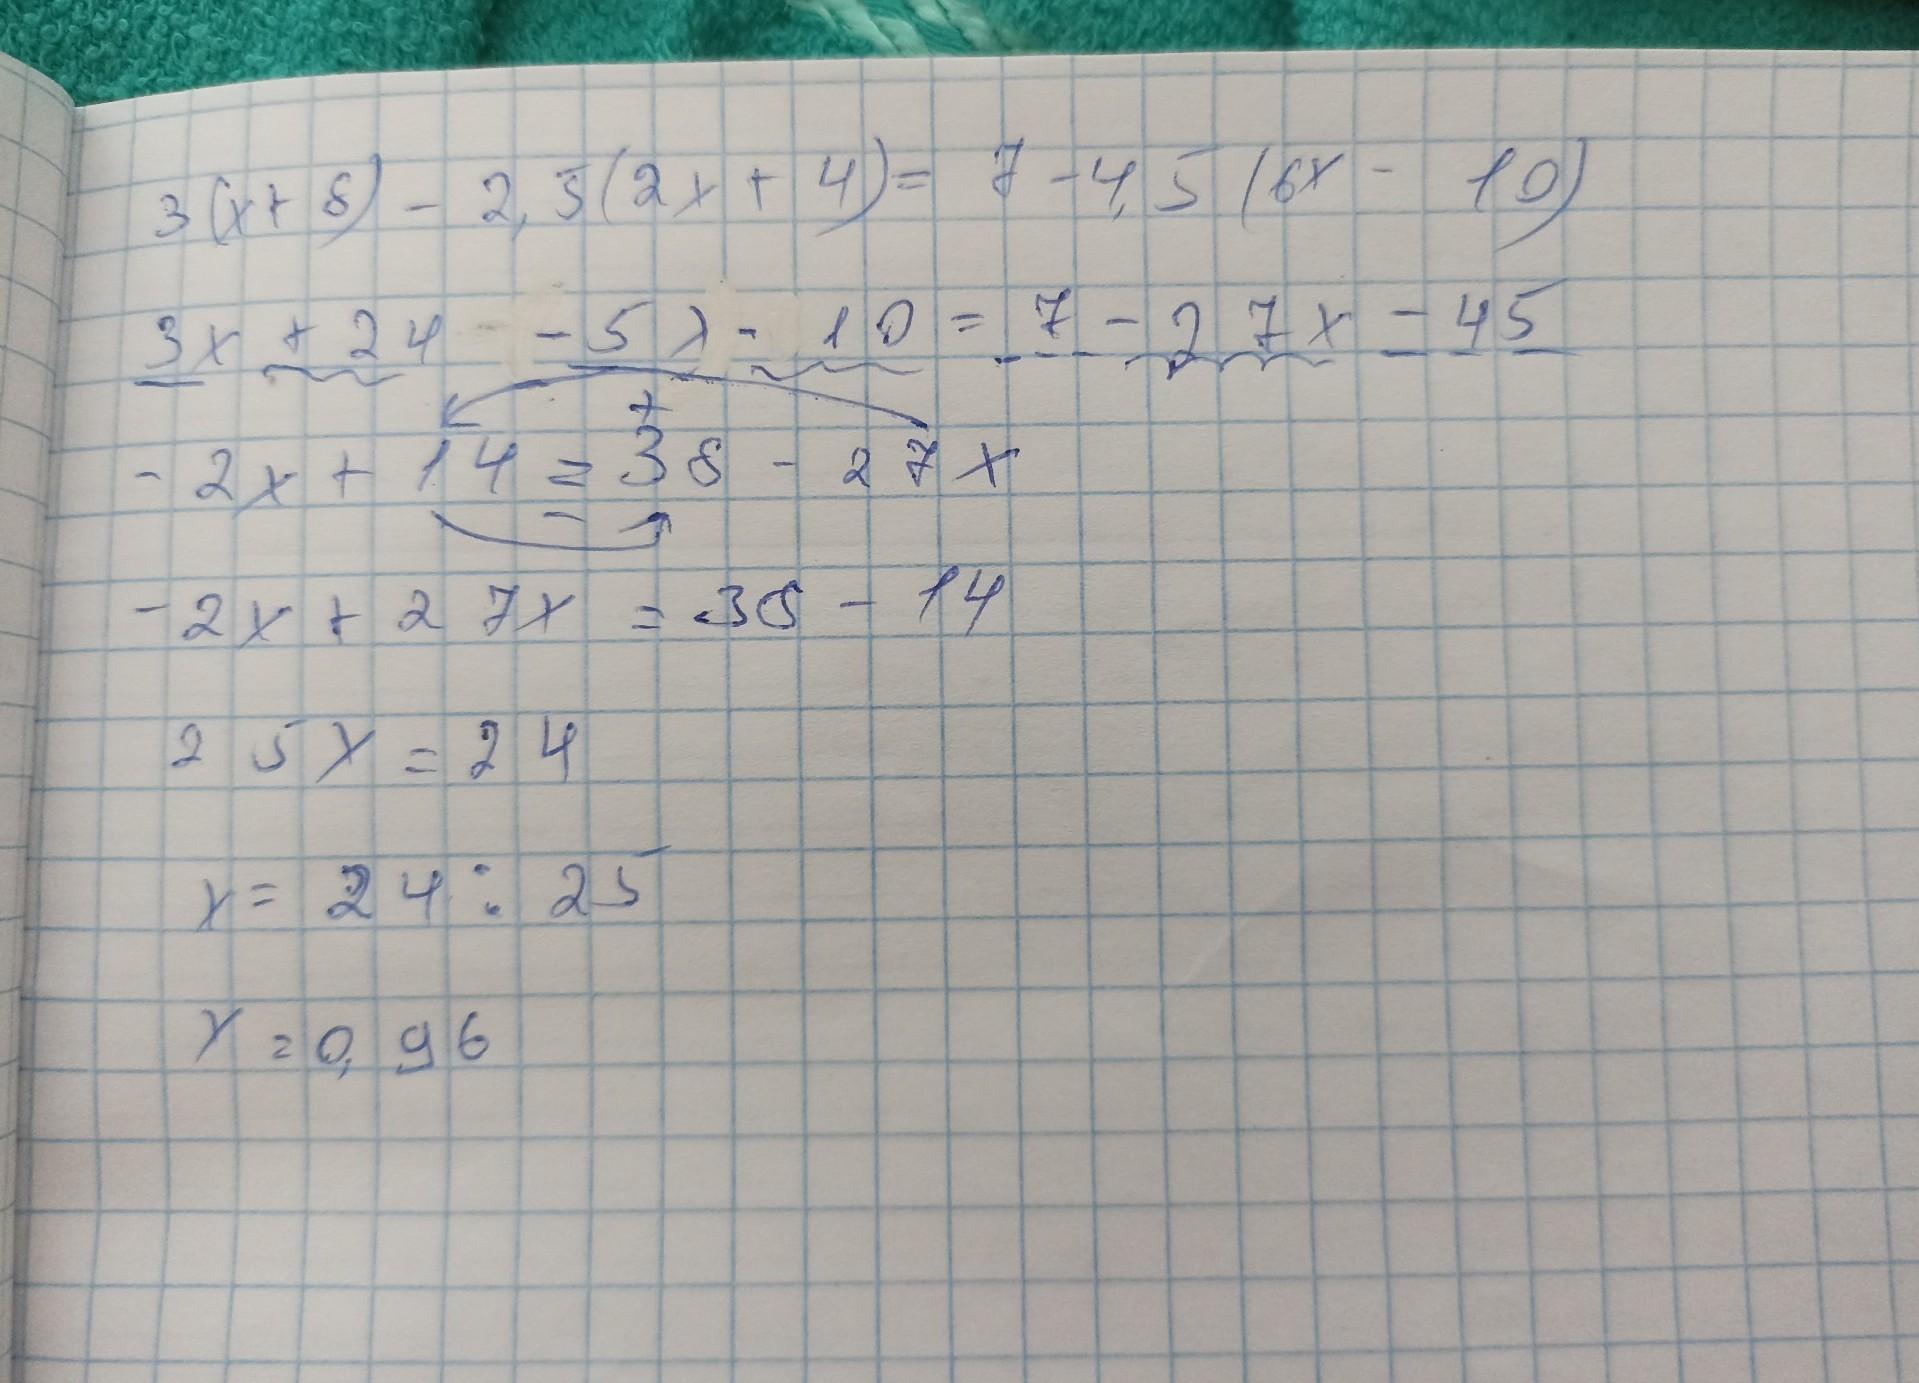 3(x+8) - 2,5(2x + 4) = 7 - 4,5(6x - 10)
3x + 24 - 5x - 10 = 7 - 27x - 45
+
-2x + 14 = 38 - 27x
-
-2x + 27x = 38 - 14
25x = 24
x = 24 : 25
x = 0,96